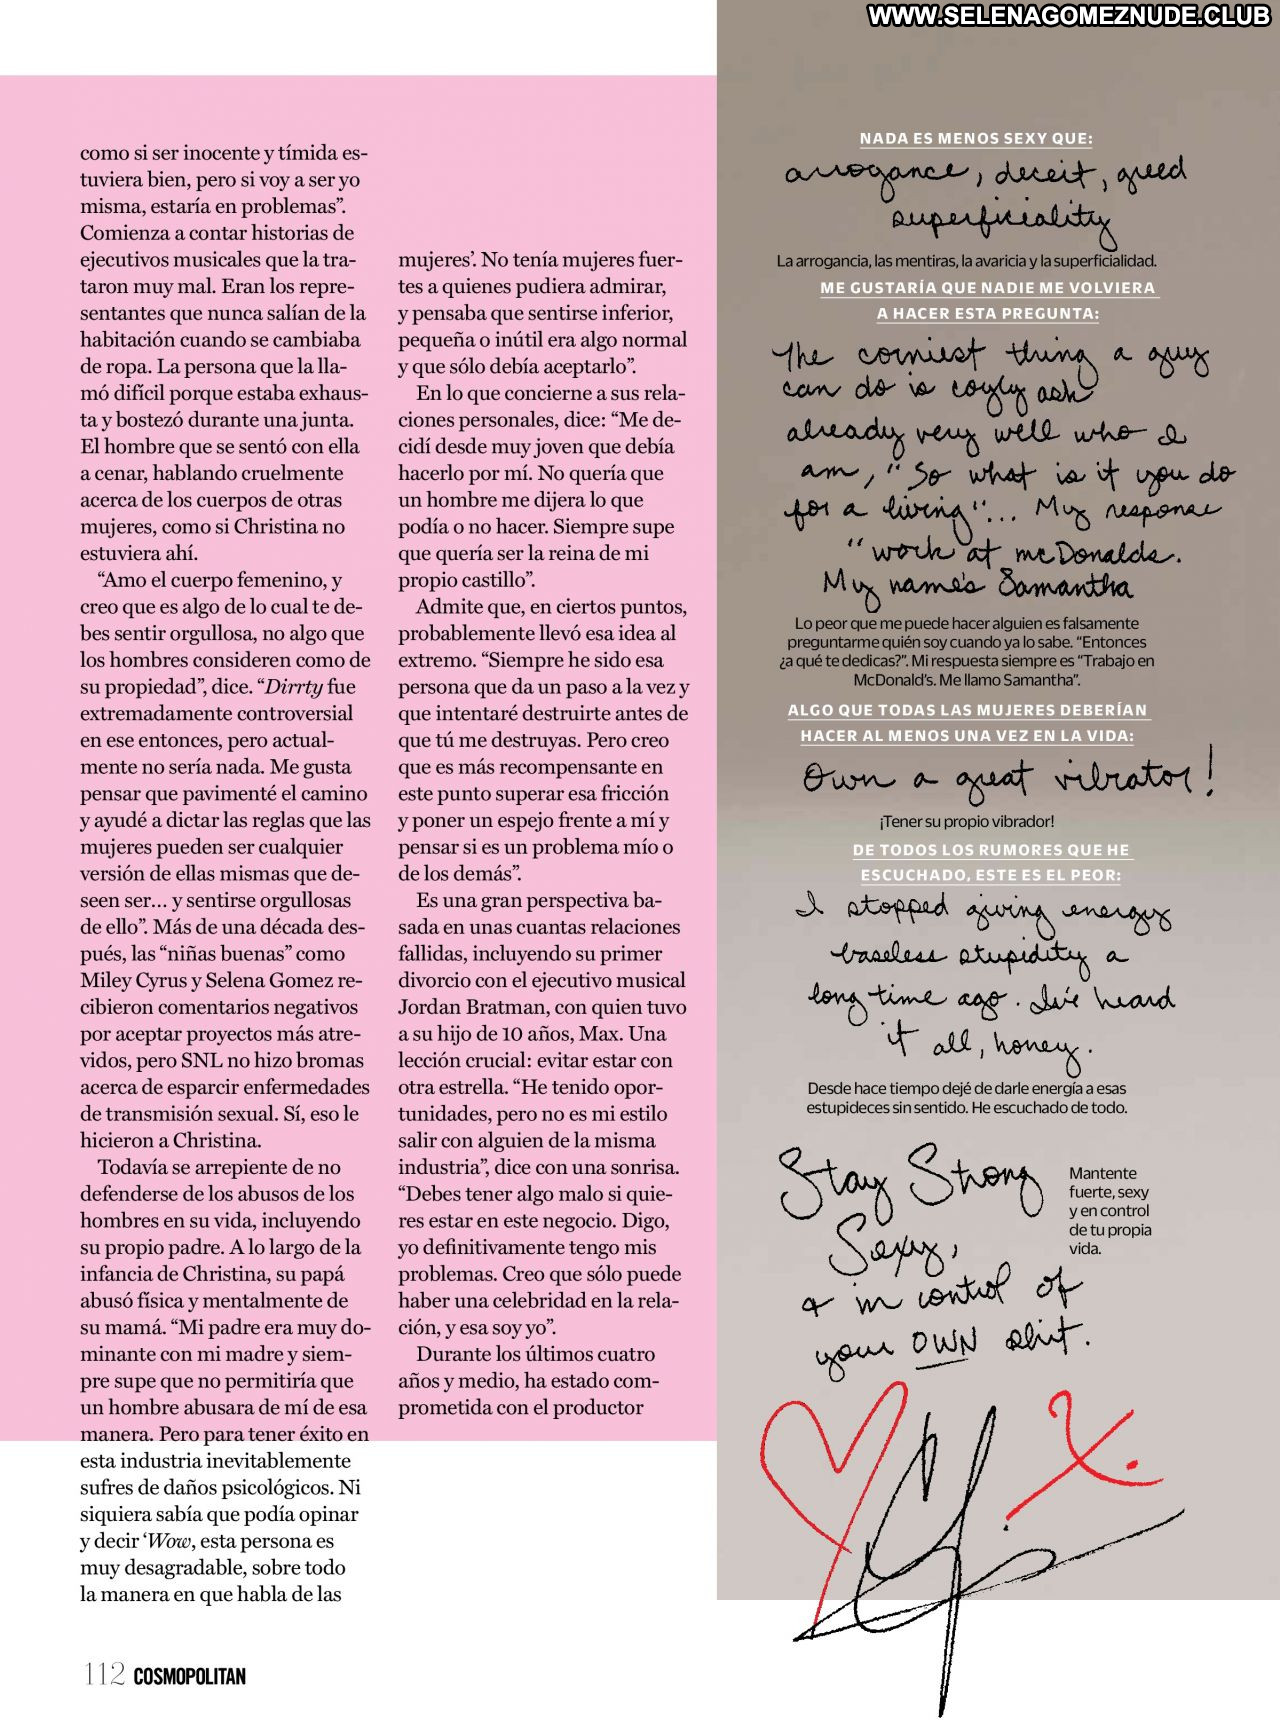 WWW.SELENAGOMEZNUDE.CLUB
como si ser inocente y tímida es-
tuviera bien, pero si voy a ser yo
misma, estaría en problemas”.
Comienza a contar historias de
ejecutivos musicales que la tra-
taron muy mal. Eran los repre-
sentantes que nunca salían de la
habitación cuando se cambiaba
de ropa. La persona que la lla-
mó difícil porque estaba exhaus-
ta y bostezó durante una junta.
El hombre que se sentó con ella
a cenar, hablando cruelmente
acerca de los cuerpos de otras
mujeres, como si Christina no
estuviera ahí.
“Amo el cuerpo femenino, y
creo que es algo de lo cual te de-
bes sentir orgullosa, no algo que
los hombres consideren como de
su propiedad”, dice. “Dirrty fue
extremadamente controversial
en ese entonces, pero actual-
mente no sería nada. Me gusta
pensar que pavimenté el camino
y ayudé a dictar las reglas que las
mujeres pueden ser cualquier
versión de ellas mismas que de-
seen ser... y sentirse orgullosas
de ello”. Más de una década des-
pués, las “niñas buenas” como
Miley Cyrus y Selena Gomez re-
cibieron comentarios negativos
por aceptar proyectos más atre-
vidos, pero SNL no hizo bromas
acerca de esparcir enfermedades
de transmisión sexual. Sí, eso le
hicieron a Christina.
Todavía se arrepiente de no
defenderse de los abusos de los
hombres en su vida, incluyendo
su propio padre. A lo largo de la
infancia de Christina, su papá
abusó física y mentalmente de
su mamá. “Mi padre era muy do-
minante con mi madre y siem-
pre supe que no permitiría que
un hombre abusara de mí de esa
manera. Pero para tener éxito en
esta industria inevitablemente
sufres de daños psicológicos. Ni
siquiera sabía que podía opinar
y decir ‘Wow, esta persona es
muy desagradable, sobre todo
la manera en que habla de las
mujeres’. No tenía mujeres fuer-
tes a quienes pudiera admirar,
y pensaba que sentirse inferior,
pequeña o inútil era algo normal
y que sólo debía aceptarlo”.
En lo que concierne a sus rela-
ciones personales, dice: “Me de-
cidí desde muy joven que debía
hacerlo por mí. No quería que
un hombre me dijera lo que
podía o no hacer. Siempre supe
que quería ser la reina de mi
propio castillo”.
Admite que, en ciertos puntos,
probablemente llevó esa idea al
extremo. “Siempre he sido esa
persona que da un paso a la vez y
que intentaré destruirte antes de
que tú me destruyas. Pero creo
que es más recompensante en
este punto superar esa fricción
y poner un espejo frente a mí y
pensar si es un problema mío o
de los demás”.
Es una gran perspectiva ba-
sada en unas cuantas relaciones
fallidas, incluyendo su primer
divorcio con el ejecutivo musical
Jordan Bratman, con quien tuvo
a su hijo de 10 años, Max. Una
lección crucial: evitar estar con
otra estrella. “He tenido opor-
tunidades, pero no es mi estilo
salir con alguien de la misma
industria”, dice con una sonrisa.
“Debes tener algo malo si quie-
res estar en este negocio. Digo,
yo definitivamente tengo mis
problemas. Creo que sólo puede
haber una celebridad en la rela-
ción, y esa soy yo”.
Durante los últimos cuatro
años y medio, ha estado com-
prometida con el productor
NADA ES MENOS SEXY QUE:
arrogance, deceit, greed
superficiality
La arrogancia, las mentiras, la avaricia y la superficialidad.
ME GUSTARÍA QUE NADIE ME VOLVIERA
A HACER ESTA PREGUNTA:
The corniest thing a guy
can do is coyly ask
already very well who I
am, "So what is it you do
for a living"... My response
"work at mcDonalds.
My name's Samantha
Lo peor que me puede hacer alguien es falsamente
preguntarme quién soy cuando ya lo sabe. “Entonces
¿a qué te dedicas?”. Mi respuesta siempre es “Trabajo en
McDonald’s. Me llamo Samantha”.
ALGO QUE TODAS LAS MUJERES DEBERÍAN
HACER AL MENOS UNA VEZ EN LA VIDA:
Own a great vibrator!
¡Tener su propio vibrador!
DE TODOS LOS RUMORES QUE HE
ESCUCHADO, ESTE ES EL PEOR:
I stopped giving energy
baseless stupidity a
long time ago. I've heard
it all, honey.
Desde hace tiempo dejé de darle energía a esas
estupideces sin sentido. He escuchado de todo.
Stay Strong
Sexy,
& in control of
your OWN shit.
Mantente
fuerte, sexy
y en control
de tu propia
vida.
X.
112 COSMOPOLITAN